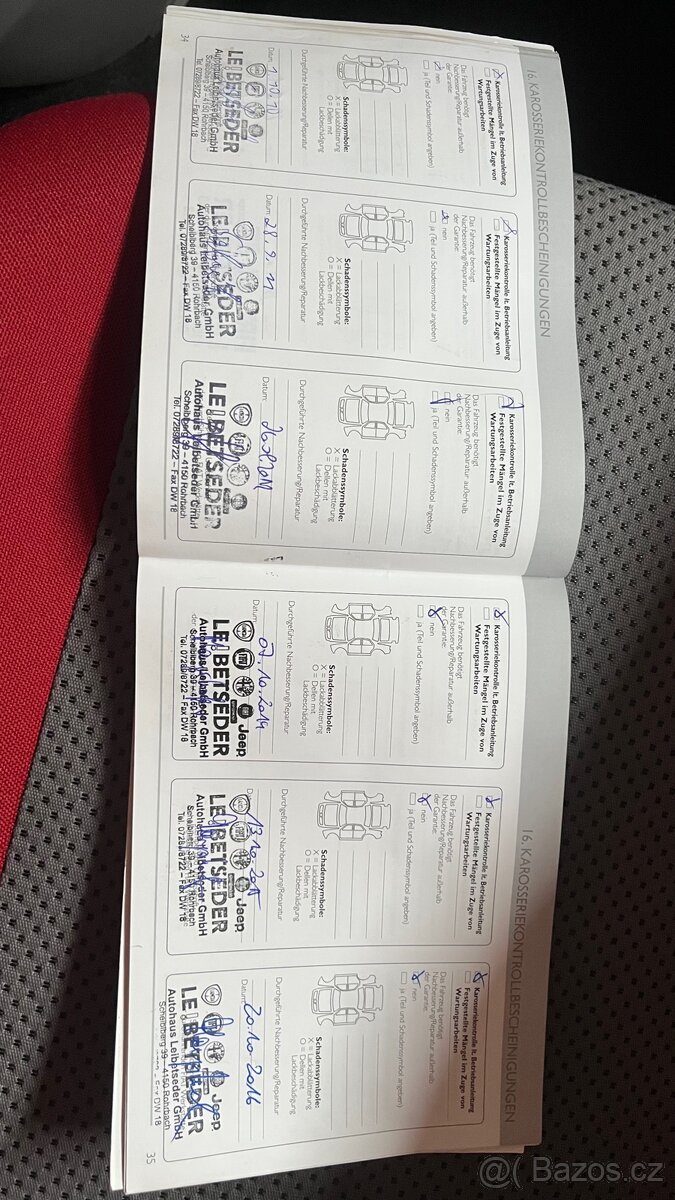 34
16. KAROSSERIEKONTROLLBESCHEINIGUNGEN
Karosseriekontrolle lt. Betriebsanleitung
Festgestellte Mängel im Zuge von
Wartungsarbeiten
Das Fahrzeug benötigt
Nachbesserung/Reparatur außerhalb
der Garantie:
nein
ja (Teil und Schadensymbol angeben)
Schadenssymbole:
X = Lackabblätterung
O = Dellen mit
Lackbeschädigung
Durchgeführte Nachbesserung/Reparatur
Datum
LEIBETSEDER
Autohaus Leibetseder GmbH
Scheiblberg 39 – 4150 Rohrbach
Tel. 07289/8722 – Fax DW 18
Karosseriekontrolle lt. Betriebsanleitung
Festgestellte Mängel im Zuge von
Wartungsarbeiten
Das Fahrzeug benötigt
Nachbesserung/Reparatur außerhalb
der Garantie:
nein
ja (Teil und Schadensymbol angeben)
Schadenssymbole:
X = Lackabblätterung
O = Dellen mit
Lackbeschädigung
Durchgeführte Nachbesserung/Reparatur
Datum: 28. 9. 11
LEIBETSEDER
Autohaus Leibetseder GmbH
Scheiblberg 39 – 4150 Rohrbach
Tel. 07289/8722 – Fax DW 18
Karosseriekontrolle lt. Betriebsanleitung
Festgestellte Mängel im Zuge von
Wartungsarbeiten
Das Fahrzeug benötigt
Nachbesserung/Reparatur außerhalb
der Garantie:
nein
ja (Teil und Schadensymbol angeben)
Schadenssymbole:
X = Lackabblätterung
O = Dellen mit
Lackbeschädigung
Durchgeführte Nachbesserung/Reparatur
Datum:
LEIBETSEDER
Autohaus Leibetseder GmbH
Scheiblberg 39 – 4150 Rohrbach
Tel. 07289/8722 – Fax DW 18
16. KAROSSERIEKONTROLLBESCHEINIGUNGEN
Karosseriekontrolle lt. Betriebsanleitung
Festgestellte Mängel im Zuge von
Wartungsarbeiten
Das Fahrzeug benötigt
Nachbesserung/Reparatur außerhalb
der Garantie:
nein
ja (Teil und Schadensymbol angeben)
Schadenssymbole:
X = Lackabblätterung
O = Dellen mit
Lackbeschädigung
Durchgeführte Nachbesserung/Reparatur
Datum 07. 10. 2014
Jeep
LEIBETSEDER
Autohaus Leibetseder GmbH
Scheiblberg 39 – 4150 Rohrbach
Tel. 07289/8722 – Fax DW 18
Karosseriekontrolle lt. Betriebsanleitung
Festgestellte Mängel im Zuge von
Wartungsarbeiten
Das Fahrzeug benötigt
Nachbesserung/Reparatur außerhalb
der Garantie:
nein
ja (Teil und Schadensymbol angeben)
Schadenssymbole:
X = Lackabblätterung
O = Dellen mit
Lackbeschädigung
Durchgeführte Nachbesserung/Reparatur
13. 10. 2015
Jeep
LEIBETSEDER
Autohaus Leibetseder GmbH
Scheiblberg 39 – 4150 Rohrbach
Tel. 07289/8722 – Fax DW 18
Karosseriekontrolle lt. Betriebsanleitung
Festgestellte Mängel im Zuge von
Wartungsarbeiten
Das Fahrzeug benötigt
Nachbesserung/Reparatur außerhalb
der Garantie:
nein
ja (Teil und Schadensymbol angeben)
Schadenssymbole:
X = Lackabblätterung
O = Dellen mit
Lackbeschädigung
Durchgeführte Nachbesserung/Reparatur
Datum: 20. 10. 2016
Jeep
LEIBETSEDER
Autohaus Leibetseder GmbH
Scheiblberg 39 – 4150 Rohrbach
Fax DW 18
35
Bazos.cz